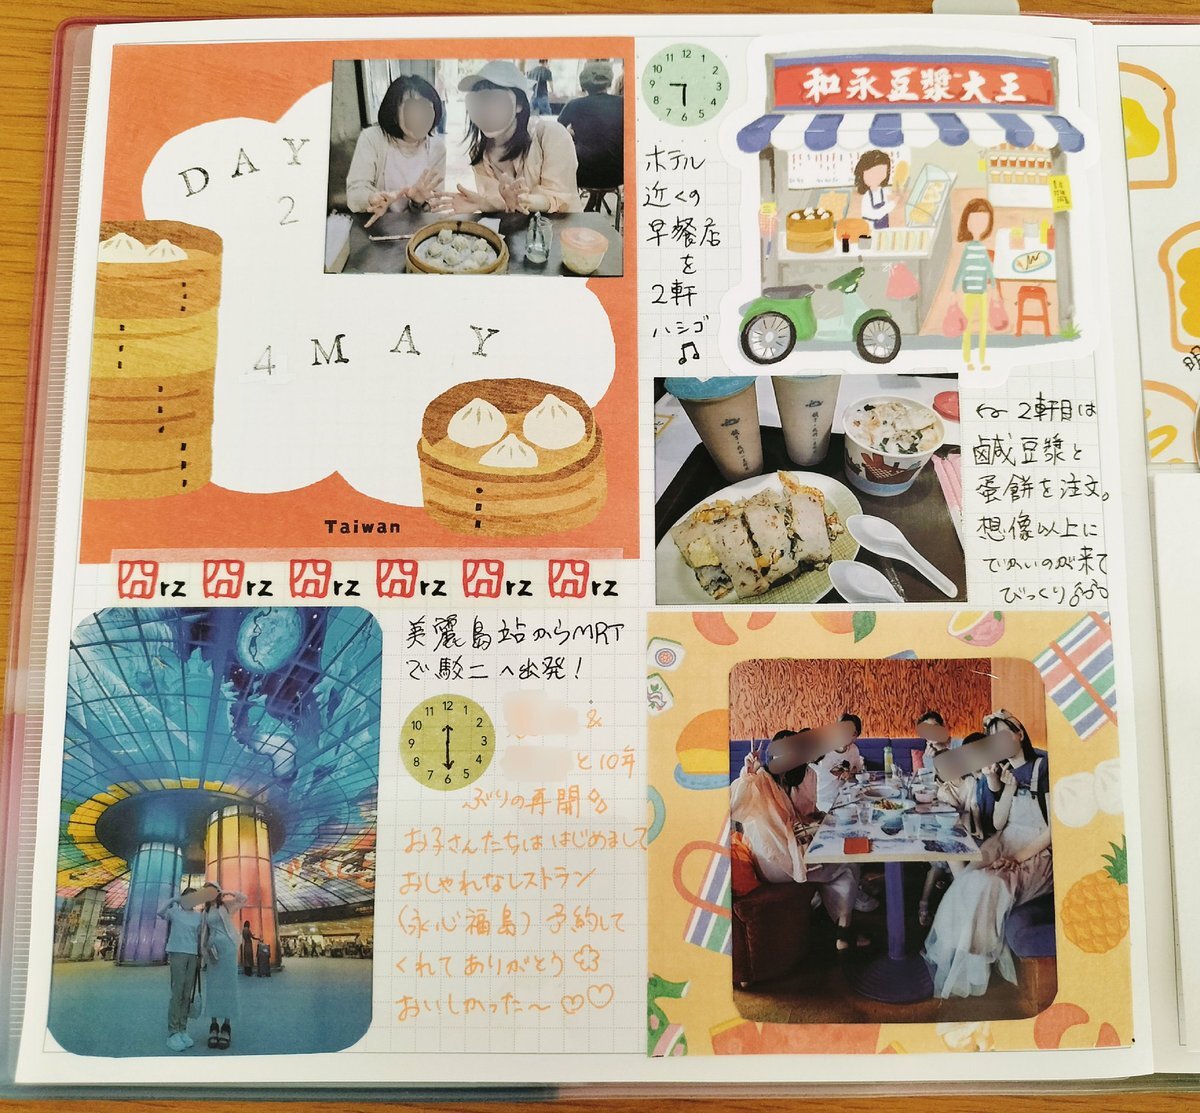 DAY
2
4 MAY
Taiwan
囧rz 囧rz 囧rz 囧rz 囧rz 囧rz
和永豆漿大王
ホテル
近くの
早餐店
を
2軒
ハシゴ
♫
2軒目は
鹹豆漿と
蛋餅を注文。
想像以上に
でかいのが来て
びっくり
美麗島站からMRT
で駁二へ出発!
12 1 2 3 4 5 6 7 8 9 10 11
12 1 2 3 4 5 6 7 8 9 10 11
&
と10年
ぶりの再開
お子さんたちははじめまして
おしゃれなレストラン
(永心福島)予約して
くれてありがとう
おいしかった〜♡♡